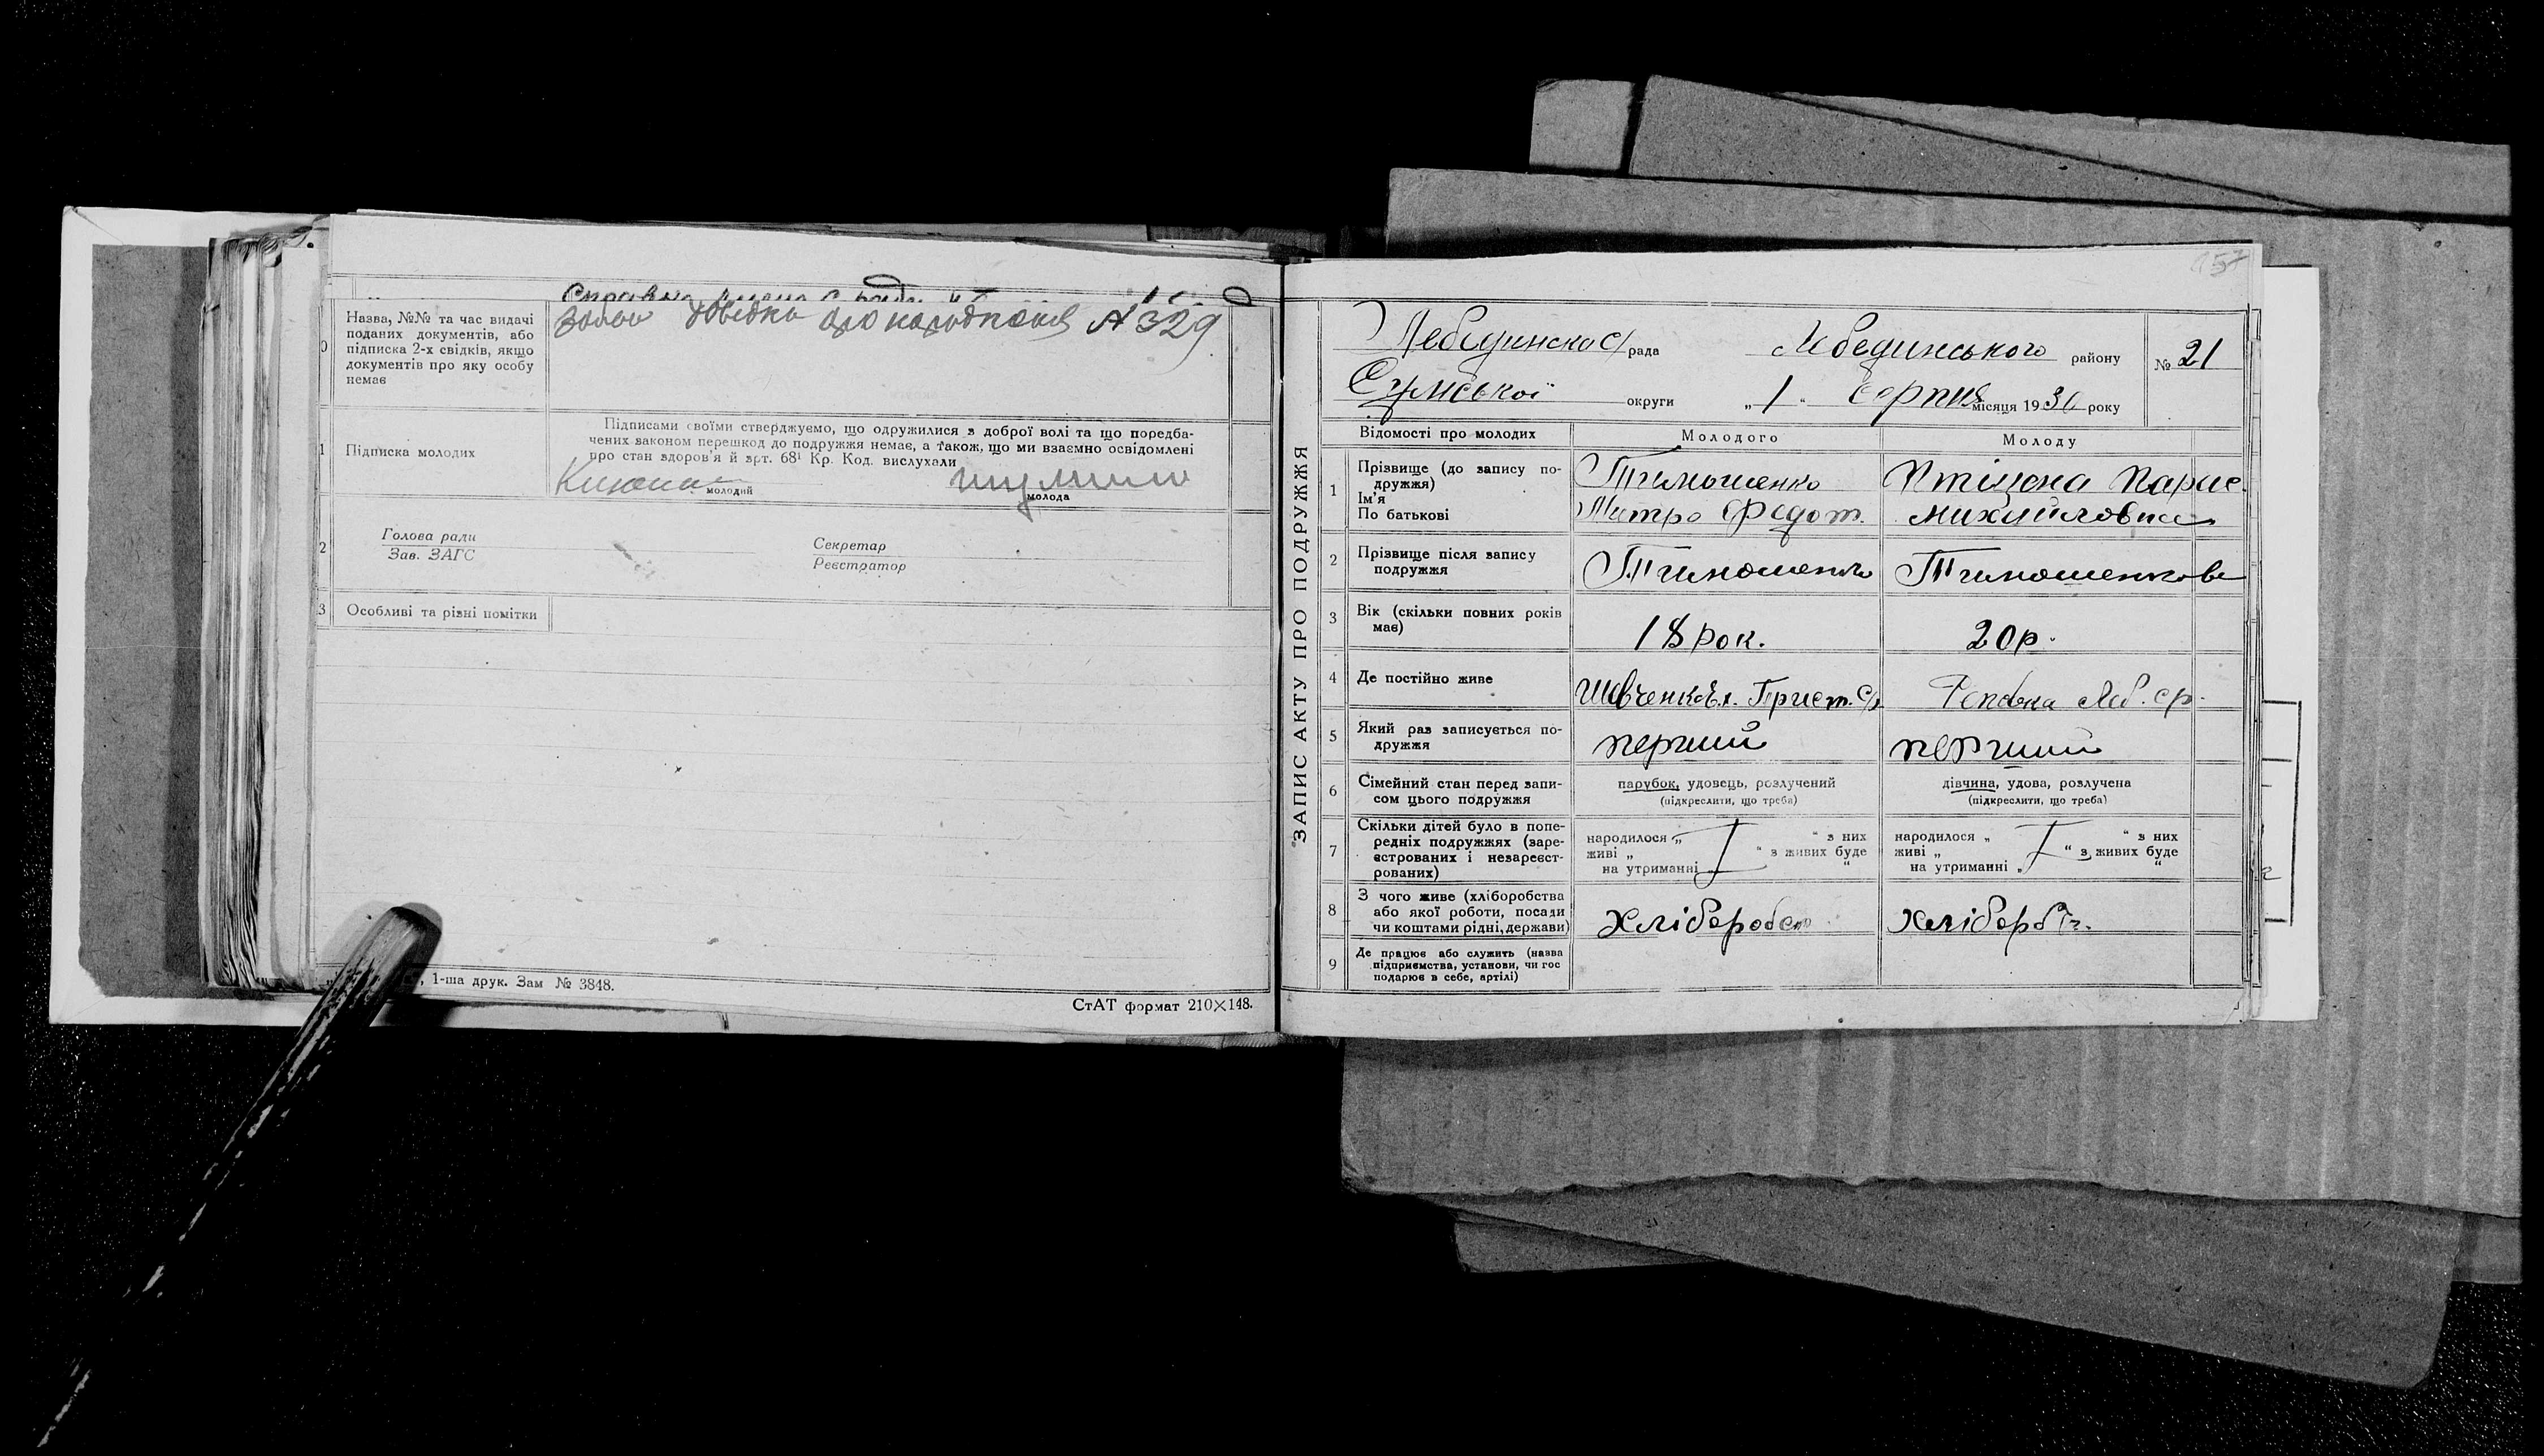 Назва, №№ та час видачі
поданих документів, або
підписка 2-х свідків, якщо
документів про яку особу
немає
Справка
довідка про народження № 329
1 Підписка молодих
Підписами своїми стверджуємо, що одружилися з доброї волі та що поредба-
чених законом перешкод до подружжя немає, а також, що ми взаємно освідомлені
про стан здоров'я й арт. 68¹ Кр. Код. вислухали
молодий
молода
2 Голова ради
Зав. ЗАГС
Секретар
Реєстратор
3 Особливі та різні помітки
, 1-ша друк. Зам № 3848.
СтАТ формат 210×148.
157
ЗАПИС АКТУ ПРО ПОДРУЖЖЯ
Лебединска с/рада Лебединського району № 21
Сумської округи „1“ серпня місяця 1930 року
Відомості про молодих Молодого Молоду
1 Прізвище (до запису по-
дружжя)
Ім'я
По батькові
Тимошенко
Митро Федот.
Птіцена Парас.
Михайловна
2 Прізвище після запису
подружжя
Тимошенко
Тимошенкова
3 Вік (скільки повних років
має)
18 рок.
20 р.
4 Де постійно живе
Шевченков. Прист. с/р
Реповка Леб. ср.
5 Який раз записується по-
дружжя
перший
перший
6 Сімейний стан перед запи-
сом цього подружжя
парубок, удовець, розлучений
(підкреслити, що треба)
дівчина, удова, розлучена
(підкреслити, що треба)
7 Скільки дітей було в попе-
редніх подружжях (заре-
єстрованих і незареєст-
рованих)
народилося „ “ з них
живі „ “ з живих буде
на утриманні „ “
народилося „ “ з них
живі „ “ з живих буде
на утриманні „ “
8 З чого живе (хліборобства
або якої роботи, посади
чи коштами рідні, держави)
Хлібороб
Хлібороб
9 Де працює або служить (назва
підприємства, установи, чи гос
подарює в себе, артілі)